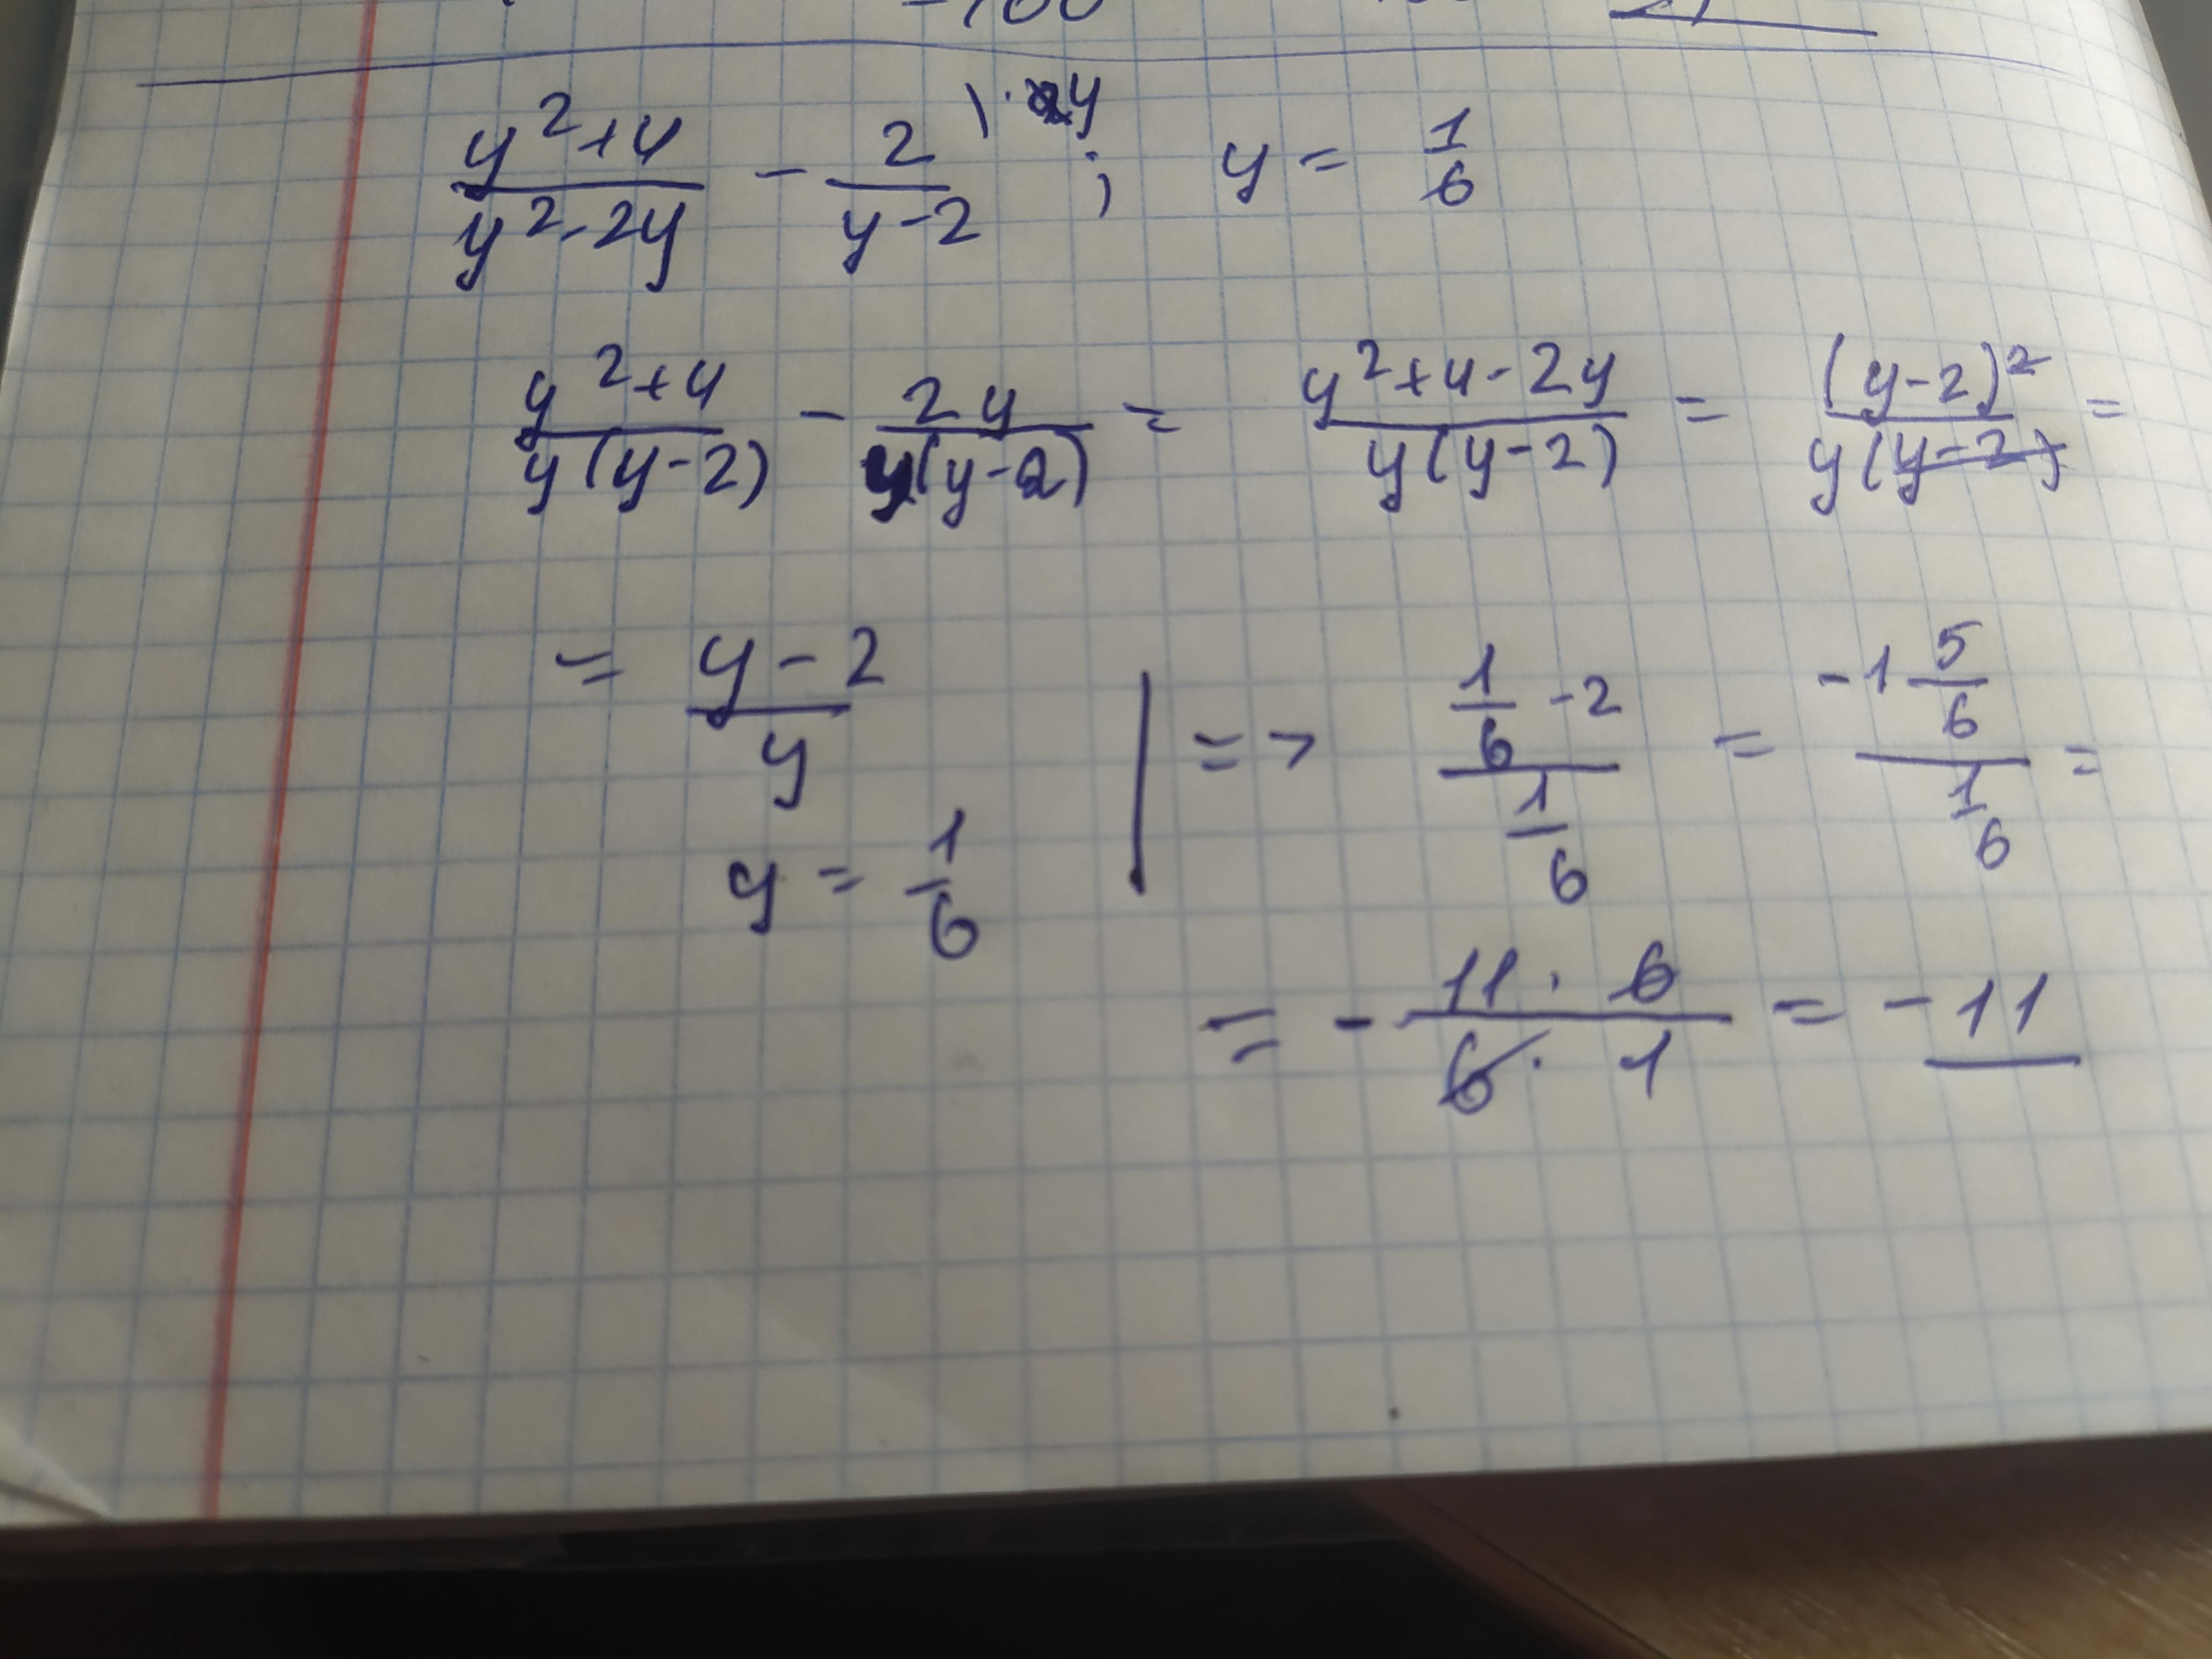 -100
y²+4 / y²-2y - 2 / y-2 \·y ; y = 1/6
y²+4 / y(y-2) - 2y / y(y-2) = y²+4-2y / y(y-2) = (y-2)² / y(y-2) =
= y-2 / y => 1/6 -2 / 1/6 = -1 5/6 / 1/6 =
y = 1/6
= - 11·6 / 6·1 = -11